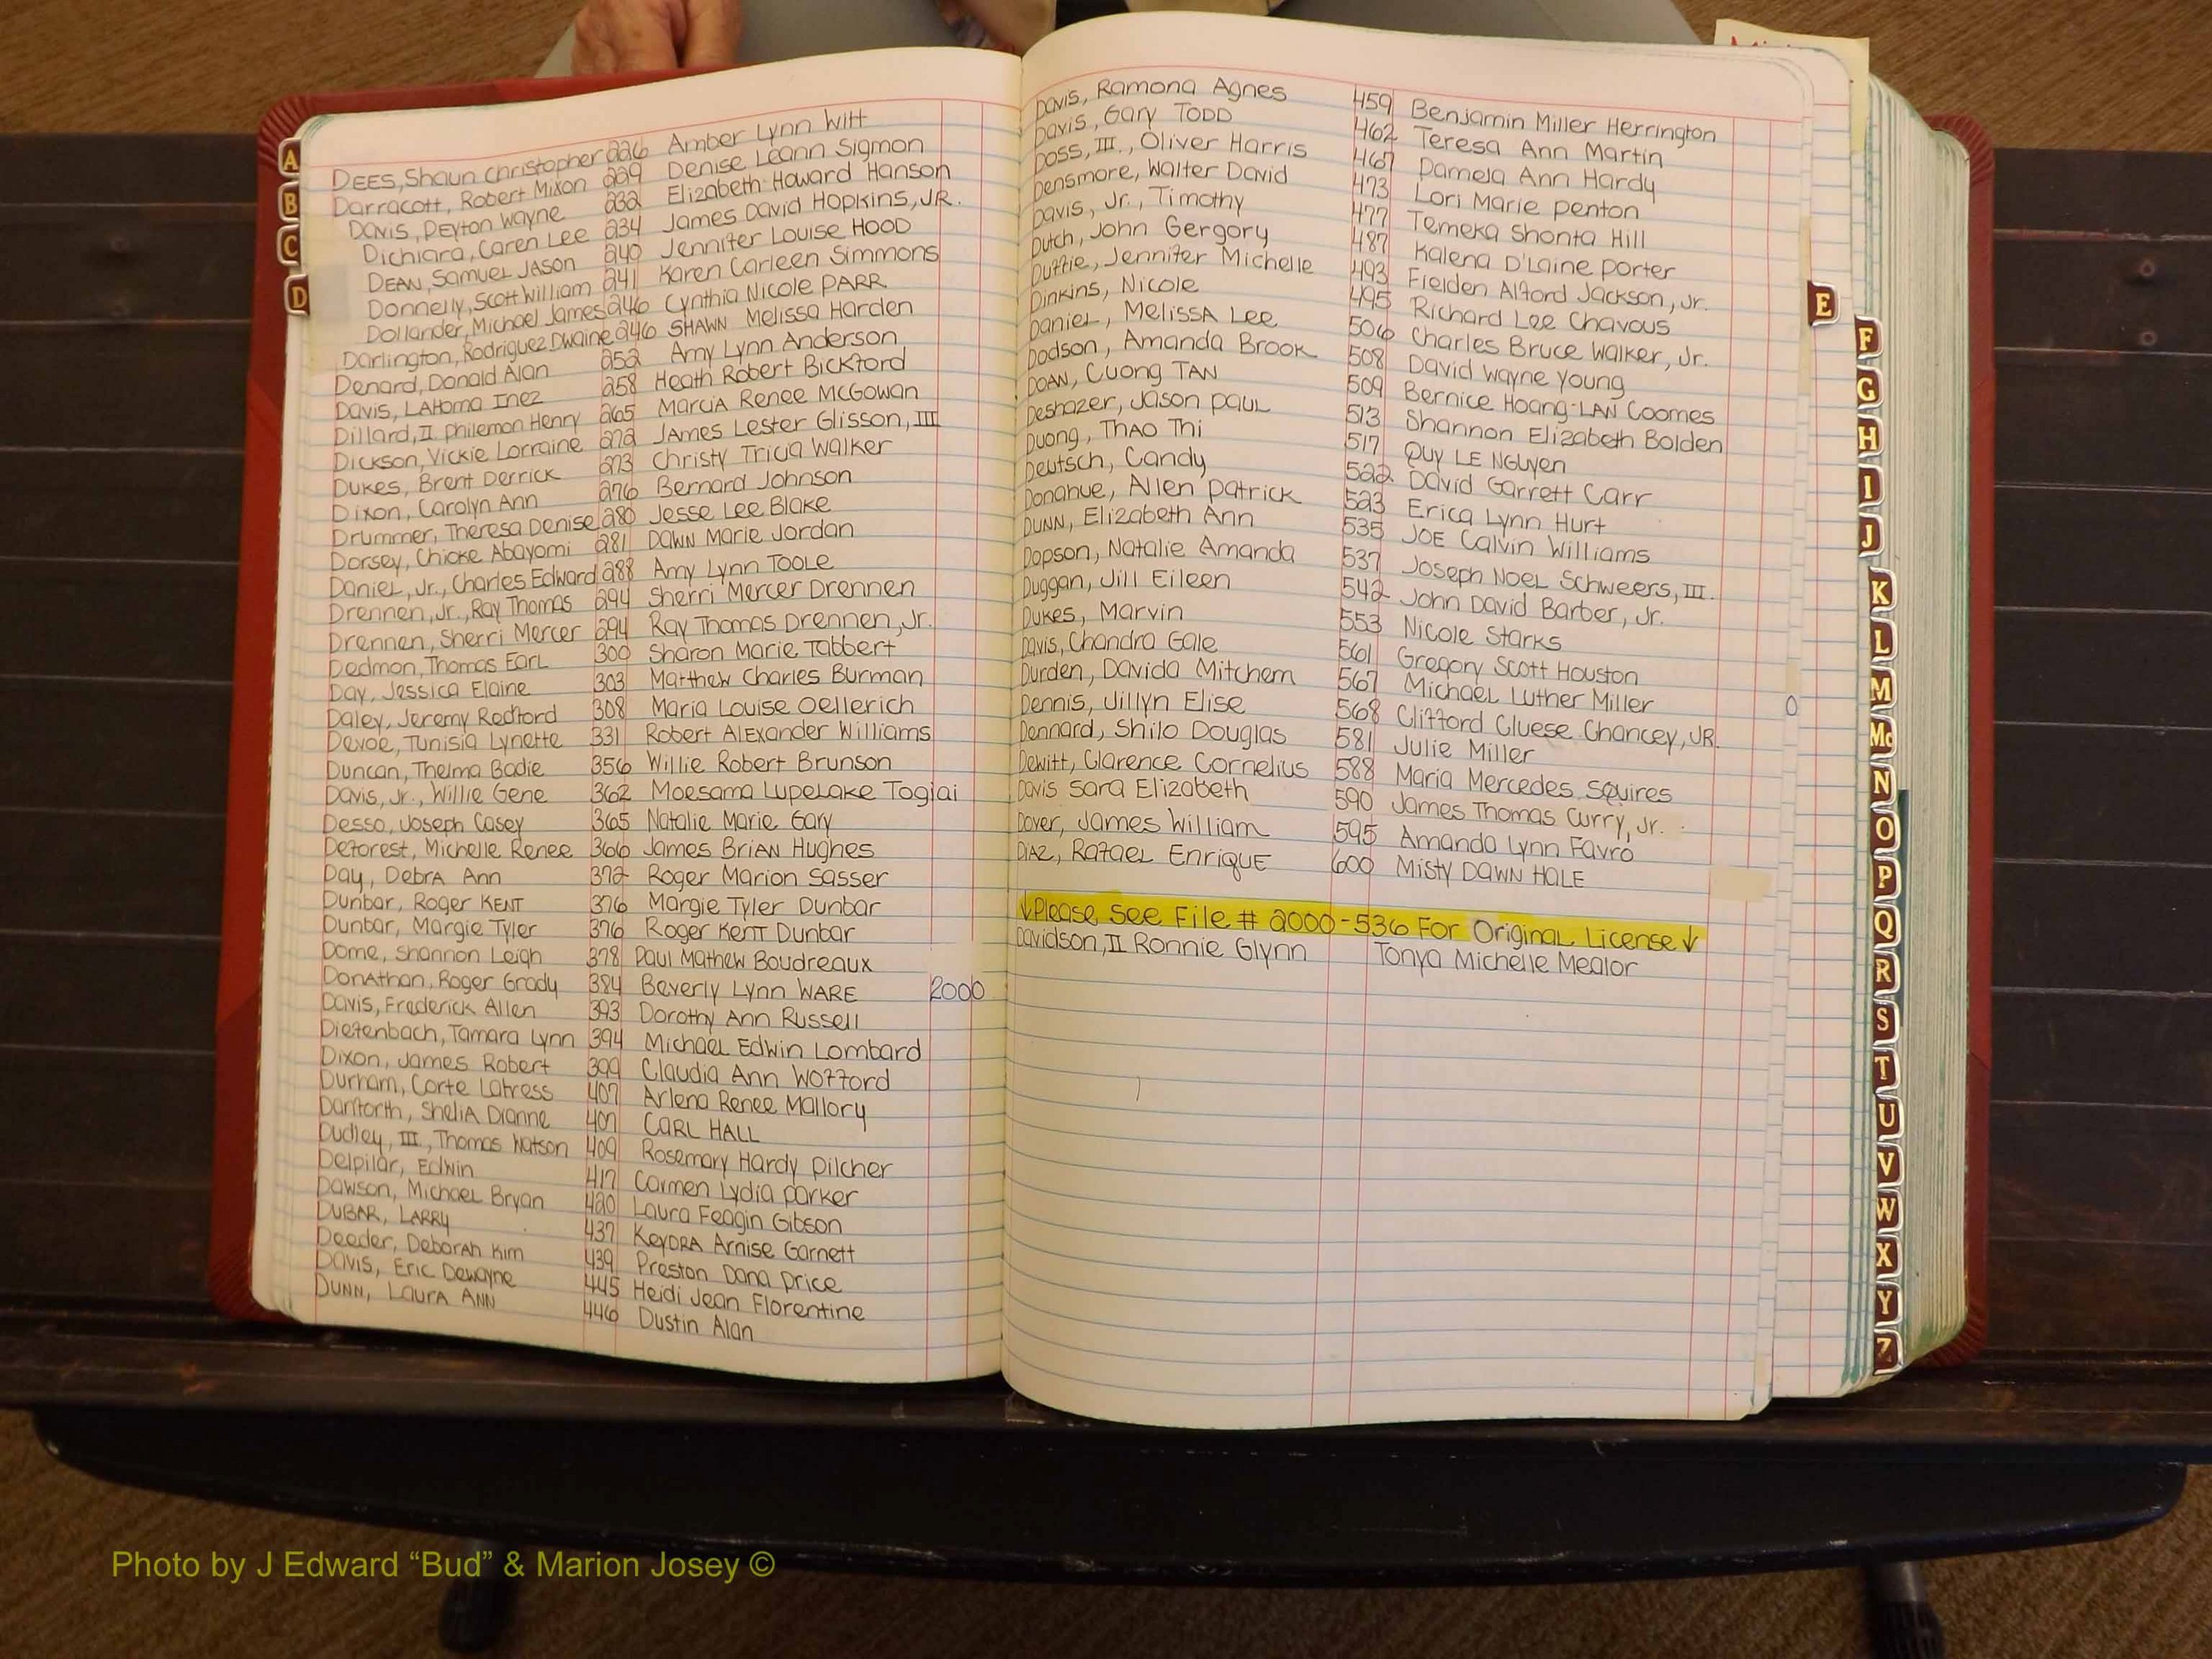 DEES, Shaun Christopher 226 Amber Lynn Witt
Darracott, Robert Mixon 229 Denise Leann Sigmon
DAVIS, Peyton Wayne 232 Elizabeth Howard Hanson
Dichiara, Caren Lee 234 James David Hopkins, JR.
DEAN, Samuel Jason 240 Jennifer Louise HOOD
Donnelly, Scott William 241 Karen Carleen Simmons
Dollander, Michael James 246 Cynthia Nicole PARR
Darlington, Rodriguez Dwaine 246 SHAWN Melissa Harden
Denard, Donald Alan 252 Amy Lynn Anderson
Davis, LAHoma Inez 258 Heath Robert Bickford
Dillard, II Philemon Henry 265 Marcia Renee McGowan
Dickson, Vickie Lorraine 272 James Lester Glisson, III
Dukes, Brent Derrick 273 Christy Tricia Walker
Dixon, Carolyn Ann 276 Bernard Johnson
Drummer, Theresa Denise 280 Jesse Lee Blake
Dorsey, Chioke Abayomi 281 DAWN Marie Jordan
Daniel, Jr., Charles Edward 288 Amy Lynn TOOLE
Drennen, Jr., Ray Thomas 294 Sherri Mercer Drennen
Drennen, Sherri Mercer 294 Ray Thomas Drennen, Jr.
Dedmon, Thomas Earl 300 Sharon Marie Tabbert
Day, Jessica Elaine 303 Matthew Charles Burman
Daley, Jeremy Redford 308 Maria Louise Oellerich
Devoe, Tunisia Lynette 331 Robert Alexander Williams
Duncan, Thelma Badie 356 Willie Robert Brunson
Davis, Jr., Willie Gene 362 Moesama Lupelake Togiai
Desso, Joseph Casey 365 Natalie Marie Gary
Deforest, Michelle Renee 366 James Brian Hughes
Day, Debra Ann 372 Roger Marion Sasser
Dunbar, Roger KENT 376 Margie Tyler Dunbar
Dunbar, Margie Tyler 376 Roger Kent Dunbar
Dome, Shannon Leigh 378 Paul Mathew Boudreaux
Donathan, Roger Grady 384 Beverly Lynn WARE 2000
Davis, Frederick Allen 393 Dorothy Ann Russell
Diefenbach, Tamara Lynn 394 Michael Edwin Lombard
Dixon, James Robert 399 Claudia Ann Wofford
Durham, Corte Latress 407 Arlena Renee Mallory
Danforth, Shelia Dianne 407 CARL HALL
Dudley, III, Thomas Watson 409 Rosemary Hardy Pilcher
Delpilar, Edwin 417 Carmen Lydia Parker
Dawson, Michael Bryan 420 Laura Feagin Gibson
DUBAR, LARRY 437 KEYDRA Arnise Garnett
Deeder, Deborah Kim 439 Preston Dana Price
DAVIS, Eric Dewayne 445 Heidi Jean Florentine
DUNN, Laura ANN 446 Dustin Alan
Davis, Ramona Agnes 459 Benjamin Miller Herrington
Davis, Gary TODD 462 Teresa Ann Martin
Doss, III., Oliver Harris 467 Pamela Ann Hardy
Densmore, Walter David 473 Lori Marie Penton
Davis, Jr., Timothy 477 Temeka Shonta Hill
Dutch, John Gergory 487 Kalena D'Laine Porter
Duffie, Jennifer Michelle 493 Fielden Alford Jackson, Jr.
Dinkins, Nicole 495 Richard Lee Chavous
Daniel, Melissa Lee 506 Charles Bruce Walker, Jr.
Dodson, Amanda Brook 508 David Wayne Young
DOAN, Cuong TAN 509 Bernice Hoang-LAN Coomes
Deshazer, Jason Paul 513 Shannon Elizabeth Bolden
Duong, THAO Thi 517 QUY LE NGUYEN
Deutsch, Candy 522 David Garrett Carr
Donahue, Allen Patrick 523 Erica Lynn Hurt
DUNN, Elizabeth Ann 535 JOE Calvin Williams
Dopson, Natalie Amanda 537 Joseph Noel Schweers, III.
Duggan, Jill Eileen 542 John David Barber, Jr.
Dukes, Marvin 553 Nicole Starks
Davis, Chandra Gale 561 Gregory Scott Houston
Durden, Davida Mitchem 567 Michael Luther Miller
Dennis, Jillyn Elise 568 Clifford Cluese Chancey, JR.
Dennard, Shilo Douglas 581 Julie Miller
Dewitt, Clarence Cornelius 588 Maria Mercedes Squires
Davis Sara Elizabeth 590 James Thomas Curry, Jr.
Dover, James William 595 Amanda Lynn Favro
DIAZ, Rafael Enrique 600 Misty DAWN HALE
↓Please See File # 2000-536 For Original License↓
Davidson, II Ronnie Glynn Tonya Michelle Mealor
A
B
C
D
E
F
G
H
I
J
K
L
M
Mc
N
O
P
Q
R
S
T
U
V
W
X
Y
Z
Photo by J Edward “Bud” & Marion Josey ©